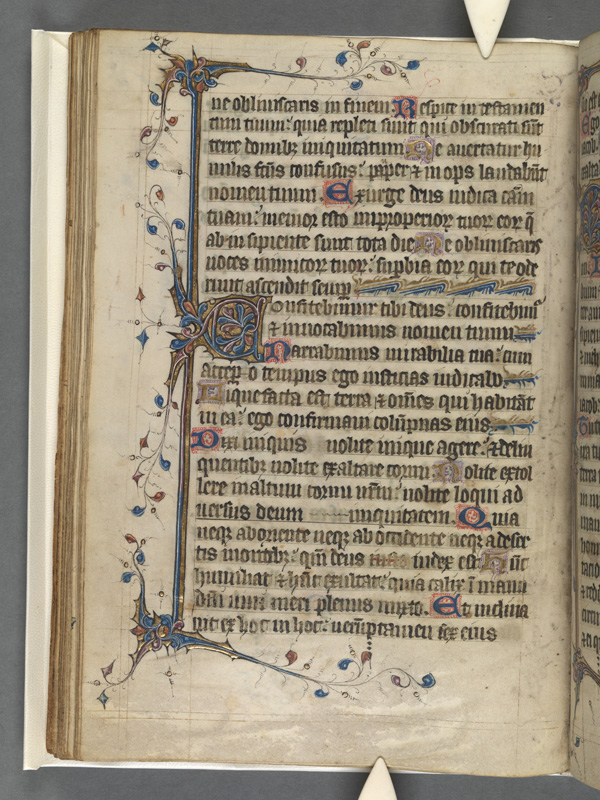 ne obliuiscaris in finem. Respice in testamen
tum tuum: quia repleti sunt qui obscurati sūt
terre domibꝫ iniquitatum. Ne auertatur hu
milis fc̄us confusus: paup̄er ⁊ inops laudabūt
nomen tuum. Exurge deus iudica cām
tuam: memor esto improperioꝝ tuoꝝ eoꝝ q̄
ab insipiente sunt tota die. Ne obliuiscaris
uoces inimicoꝝ tuoꝝ: supbia eoꝝ qui te ode
runt ascendit semp̄
Confitebimur tibi deus: confitebimᷣ
⁊ inuocabimus nomen tuum
Narrabimus mirabilia tua: cum
accep̄o tempus ego iusticias iudicabo
Liquefacta est terra ⁊ om̄es qui habitāt
in ea: ego confirmaui columpnas eius
Dixi iniquis nolite inique agere: ⁊ delin
quentibꝫ nolite exaltare cornu. Nolite extol
lere in altum cornu ur̄m: nolite loqui ad
uersus deum iniquitatem. Quia
neqꝫ ab oriente neqꝫ ab occidente neqꝫ a deser
tis montibꝫ: qm̄ deus iudex est. Hūc
humiliat ⁊ hūc exultat: quia calix ī manu
dn̄i uini meri plenus mixto. Et inclina
uit ex hoc in hoc: uerūptamen fex eius